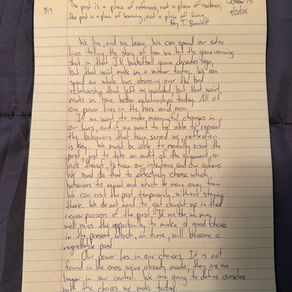 The past is a place of reference, not a place of residence;
the past is a place of learning, not a place of living.
Roy T. Bennett
We live, and we learn. We can spend our entire
lives telling the story of how we hit the game winning
shot in that J.V. basketball game decades ago,
but that won't make us a winner today. We can
spend our whole lives obsessing over the bad
relationship that left us wounded, but that won't
make us have better relationships today. All of
our power lies in the here and now.
If we want to make meaningful changes in
our lives, and if we want to be able to repeat
the behaviors that have served us, reflection
is key. We must be able to mentally visit the
past, just to take an audit of the
between our intentions and our actions.
We must do that to effectively choose which
behaviors to repeat and which to move away from.
We can visit the past temporarily without staying
there. We do not need to get caught up in that
process of the past. If we do, we may
well pass the opportunity to make a good choice
in the present, which, in time, will become a
regrettable past.
Our power lies in our choices. It is not
found in the ones we've already made, they are no
longer in our control. We are going to define ourselves
with the choices we make today.